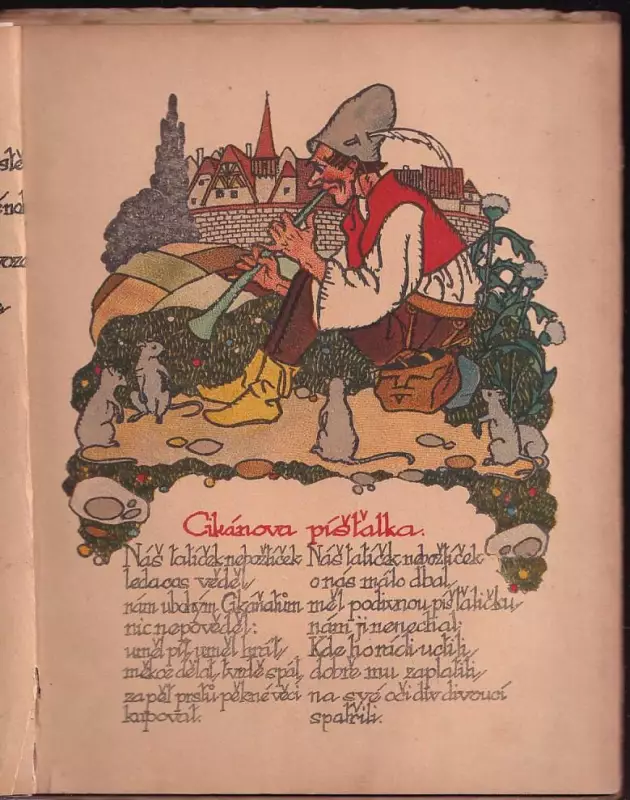 Cikánova píšťalka.
Náš tatíček nebožtíček
ledacos věděl,
nám ubohým Cikáňatům
nic nepověděl:
uměl pít, uměl hrát,
měkce dělat, tvrdě spát,
za pět prstů pěkné věci
kupoval.
Náš tatíček nebožtíček
o nás málo dbal,
měl podivnou píšťaličku,
nám ji nenechal;
Kde ho rádi uctili,
dobře mu zaplatili,
na své oči div divoucí
spatřili.